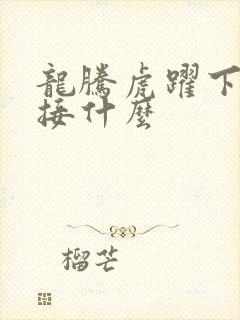 龍騰虎躍下
接什麼
榴芒